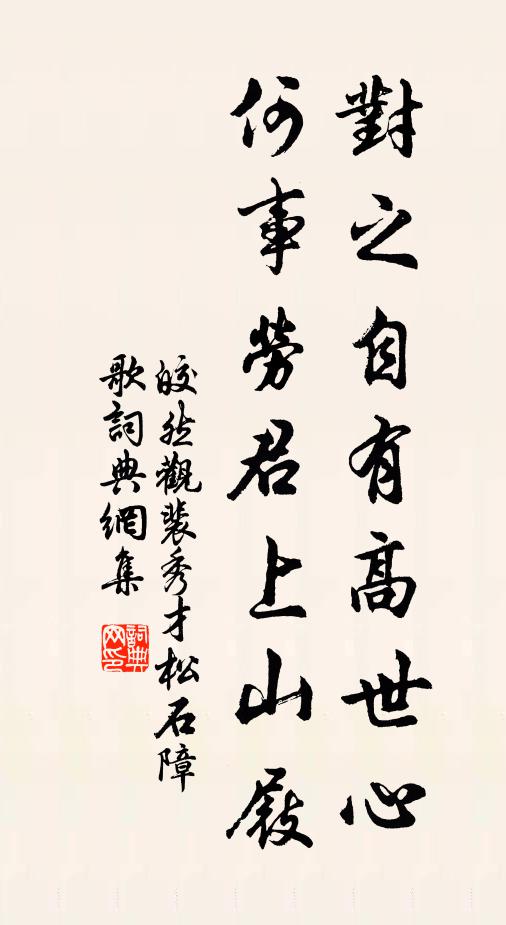 對之自有高世心
何事勞君上山屐
皎然觀裴秀才松石障
歌詞典網集
詞典網印